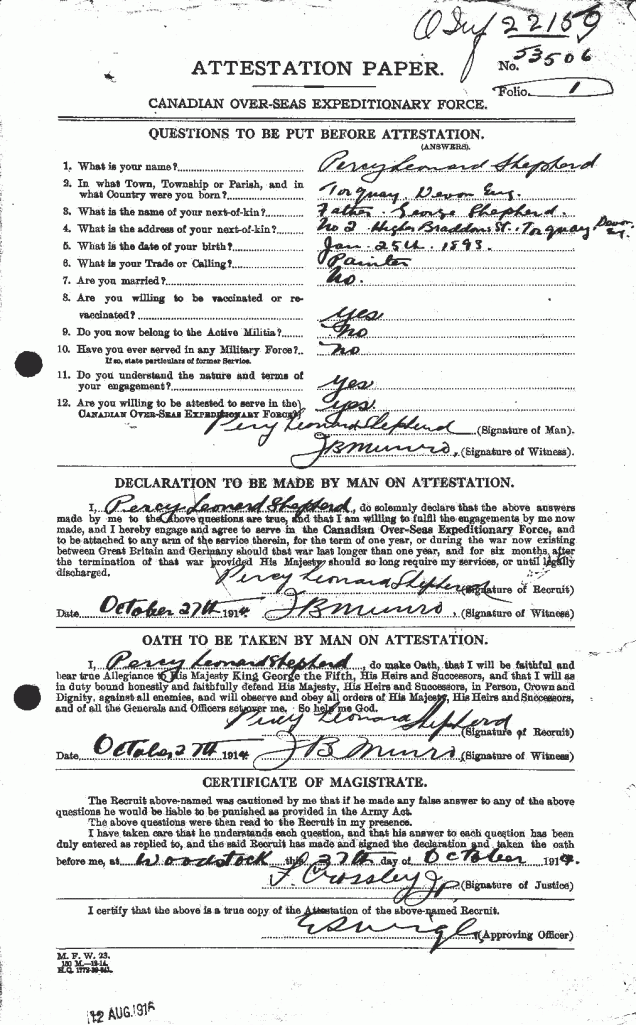 22159
ATTESTATION PAPER.
No. 53506
Folio. 1
CANADIAN OVER-SEAS EXPEDITIONARY FORCE.
QUESTIONS TO BE PUT BEFORE ATTESTATION.
(ANSWERS).
1. What is your name? Percy Leonard Shepherd
2. In what Town, Township or Parish, and in
what Country were you born? Torquay, Devon Eng.
3. What is the name of your next-of-kin? Father. George Shepherd.
4. What is the address of your next-of-kin? No 2 Higher Braddons St. Torquay Devon
5. What is the date of your birth? Jan. 25th. 1893.
6. What is your Trade or Calling? Painter
7. Are you married? No.
8. Are you willing to be vaccinated or re-
vaccinated? yes
9. Do you now belong to the Active Militia? No
10. Have you ever served in any Military Force? No
If so, state particulars of former Service.
11. Do you understand the nature and terms of
your engagement? yes
12. Are you willing to be attested to serve in the
CANADIAN OVER-SEAS EXPEDITIONARY FORCE? yes
Percy Leonard Shepherd (Signature of Man).
J B Munro, (Signature of Witness).
DECLARATION TO BE MADE BY MAN ON ATTESTATION.
I, Percy Leonard Shepherd, do solemnly declare that the above answers
made by me to the above questions are true, and that I am willing to fulfil the engagements by me now
made, and I hereby engage and agree to serve in the Canadian Over-Seas Expeditionary Force, and
to be attached to any arm of the service therein, for the term of one year, or during the war now existing
between Great Britain and Germany should that war last longer than one year, and for six months after
the termination of that war provided His Majesty should so long require my services, or until legally
discharged.
Percy Leonard Shepherd (Signature of Recruit)
Date October 27th 1914 J B Munro, (Signature of Witness)
OATH TO BE TAKEN BY MAN ON ATTESTATION.
I, Percy Leonard Shepherd, do make Oath, that I will be faithful and
bear true Allegiance to His Majesty King George the Fifth, His Heirs and Successors, and that I will as
in duty bound honestly and faithfully defend His Majesty, His Heirs and Successors, in Person, Crown and
Dignity, against all enemies, and will observe and obey all orders of His Majesty, His Heirs and Successors,
and of all the Generals and Officers set over me. So help me God.
Percy Leonard Shepherd
(Signature of Recruit)
Date October 27th 1914 J B Munro (Signature of Witness)
CERTIFICATE OF MAGISTRATE.
The Recruit above-named was cautioned by me that if he made any false answer to any of the above
questions he would be liable to be punished as provided in the Army Act.
The above questions were then read to the Recruit in my presence.
I have taken care that he understands each question, and that his answer to each question has been
duly entered as replied to, and the said Recruit has made and signed the declaration and taken the oath
before me, at Woodstock this 27th day of October 1914.
F. Crossley J.P. (Signature of Justice)
I certify that the above is a true copy of the Attestation of the above-named Recruit.
(Approving Officer)
M. F. W. 23.
12 AUG. 1916